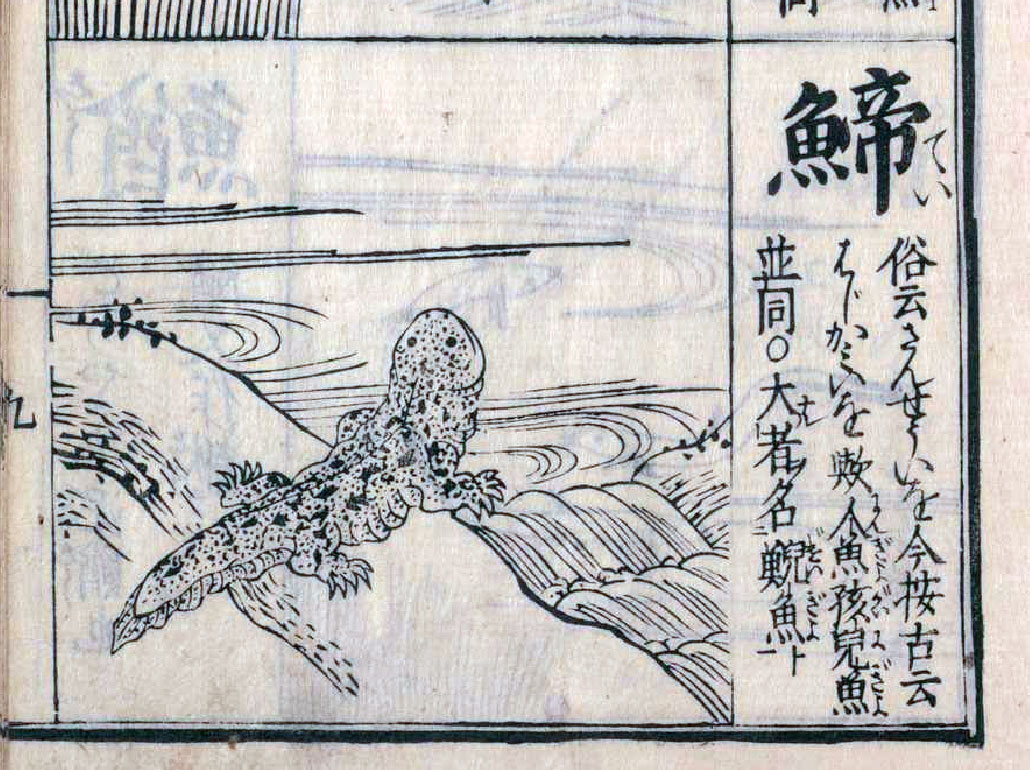 䱱
てい
俗云さんせういを今按古云
はじかみいを歟人魚孩兒魚
並同○大者名鯢魚